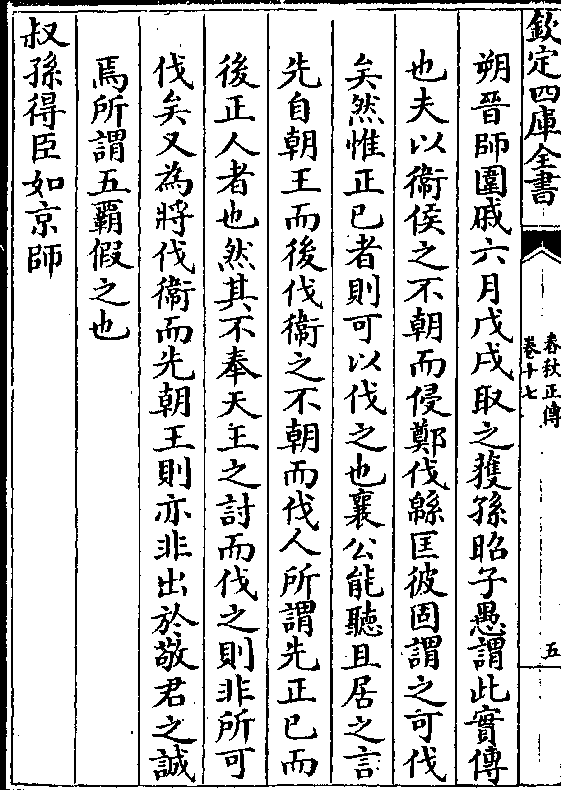 欽定四庫全書
春秋正傳
卷十七
五
朔晉師圍戚六月戊戌取之獲孫昭子愚謂此實傳
也夫以衞侯之不朝而侵鄭伐緜匡彼固謂之可伐
矣然惟正已者則可以伐之也襄公能聽且居之言
先自朝王而後伐衞之不朝而伐人所謂先正已而
後正人者也然其不奉天王之討而伐之則非所可
伐矣又為將伐衞而先朝王則亦非出於敬君之誠
焉所謂五霸假之也
叔孫得臣如京師